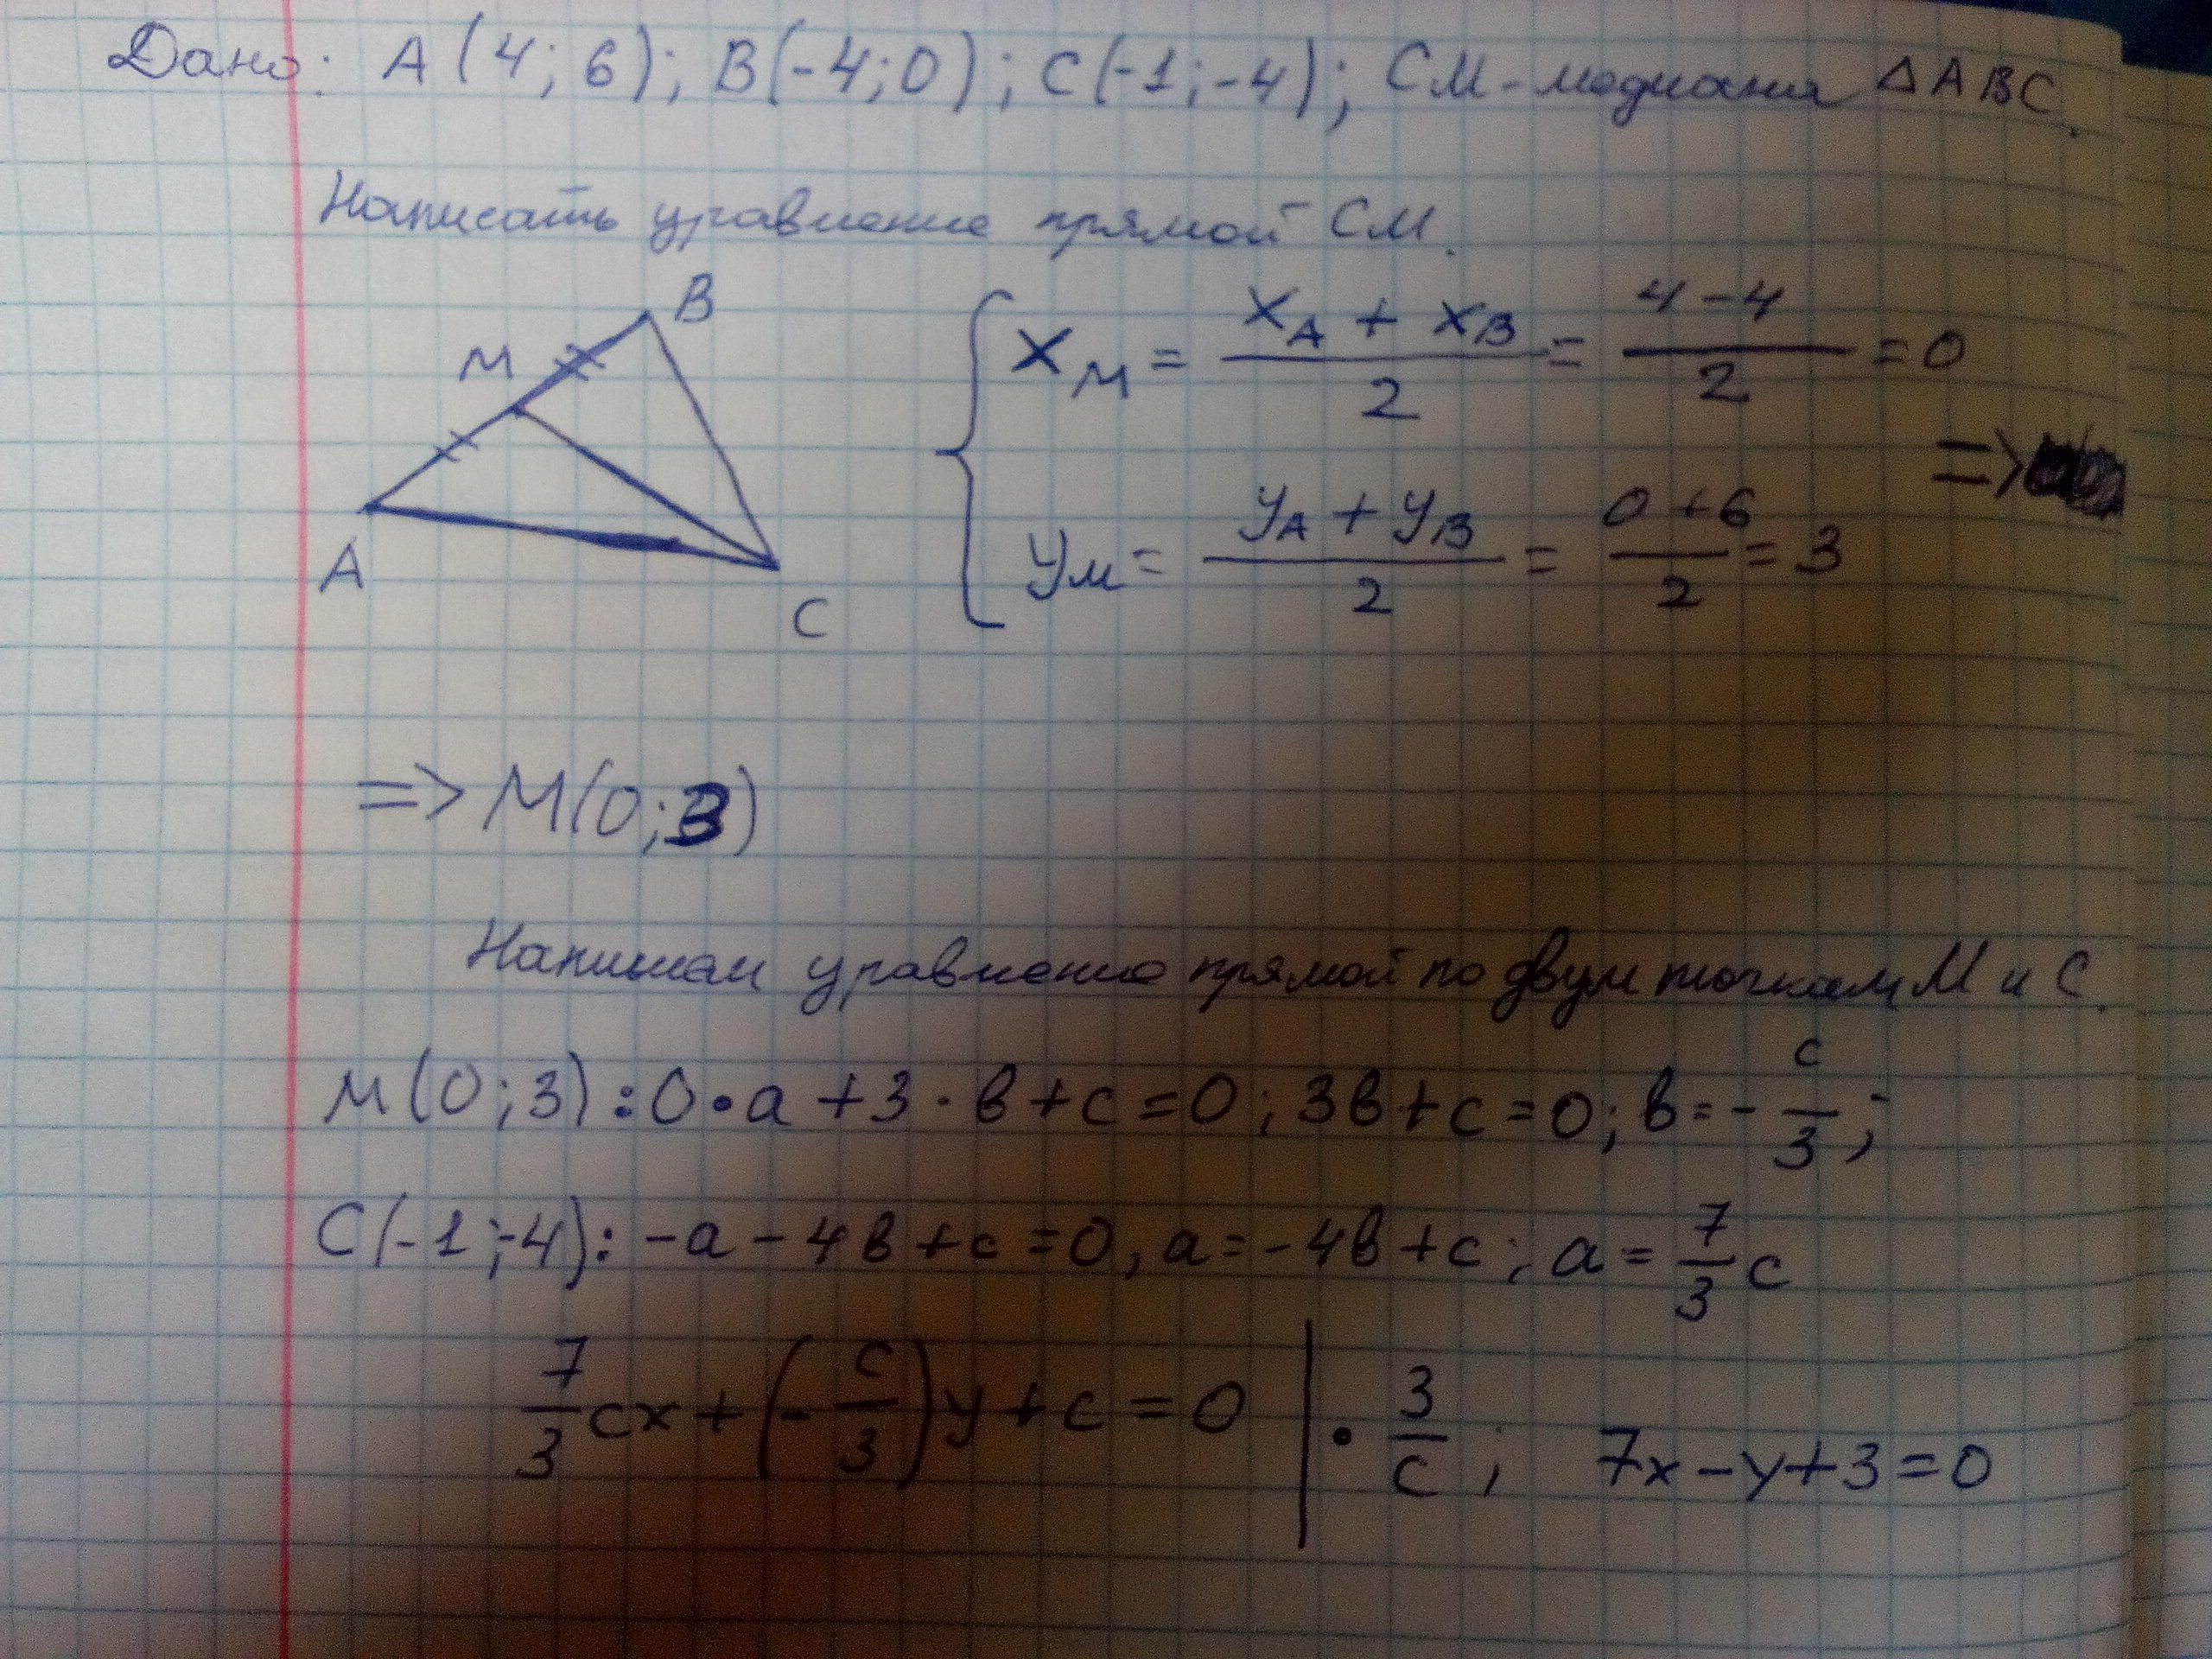 Дано: A(4;6); B(-4;0); C(-1;-4); CM-медиана △ABC.
Написать уравнение прямой CM.
B
M
A
C
x_M = (x_A + x_B)/2 = (4-4)/2 = 0
=>
y_M = (y_A + y_B)/2 = (0+6)/2 = 3
=> M(0;3)
Напишем уравнение прямой по двум точкам M и C.
M(0;3): 0•a+3·в+c=0; 3в+c=0; в=-c/3;
C(-1;-4): -a-4в+c=0, a=-4в+c; a=7/3 c
7/3 cx+(-c/3)y+c=0 | • 3/c; 7x-y+3=0